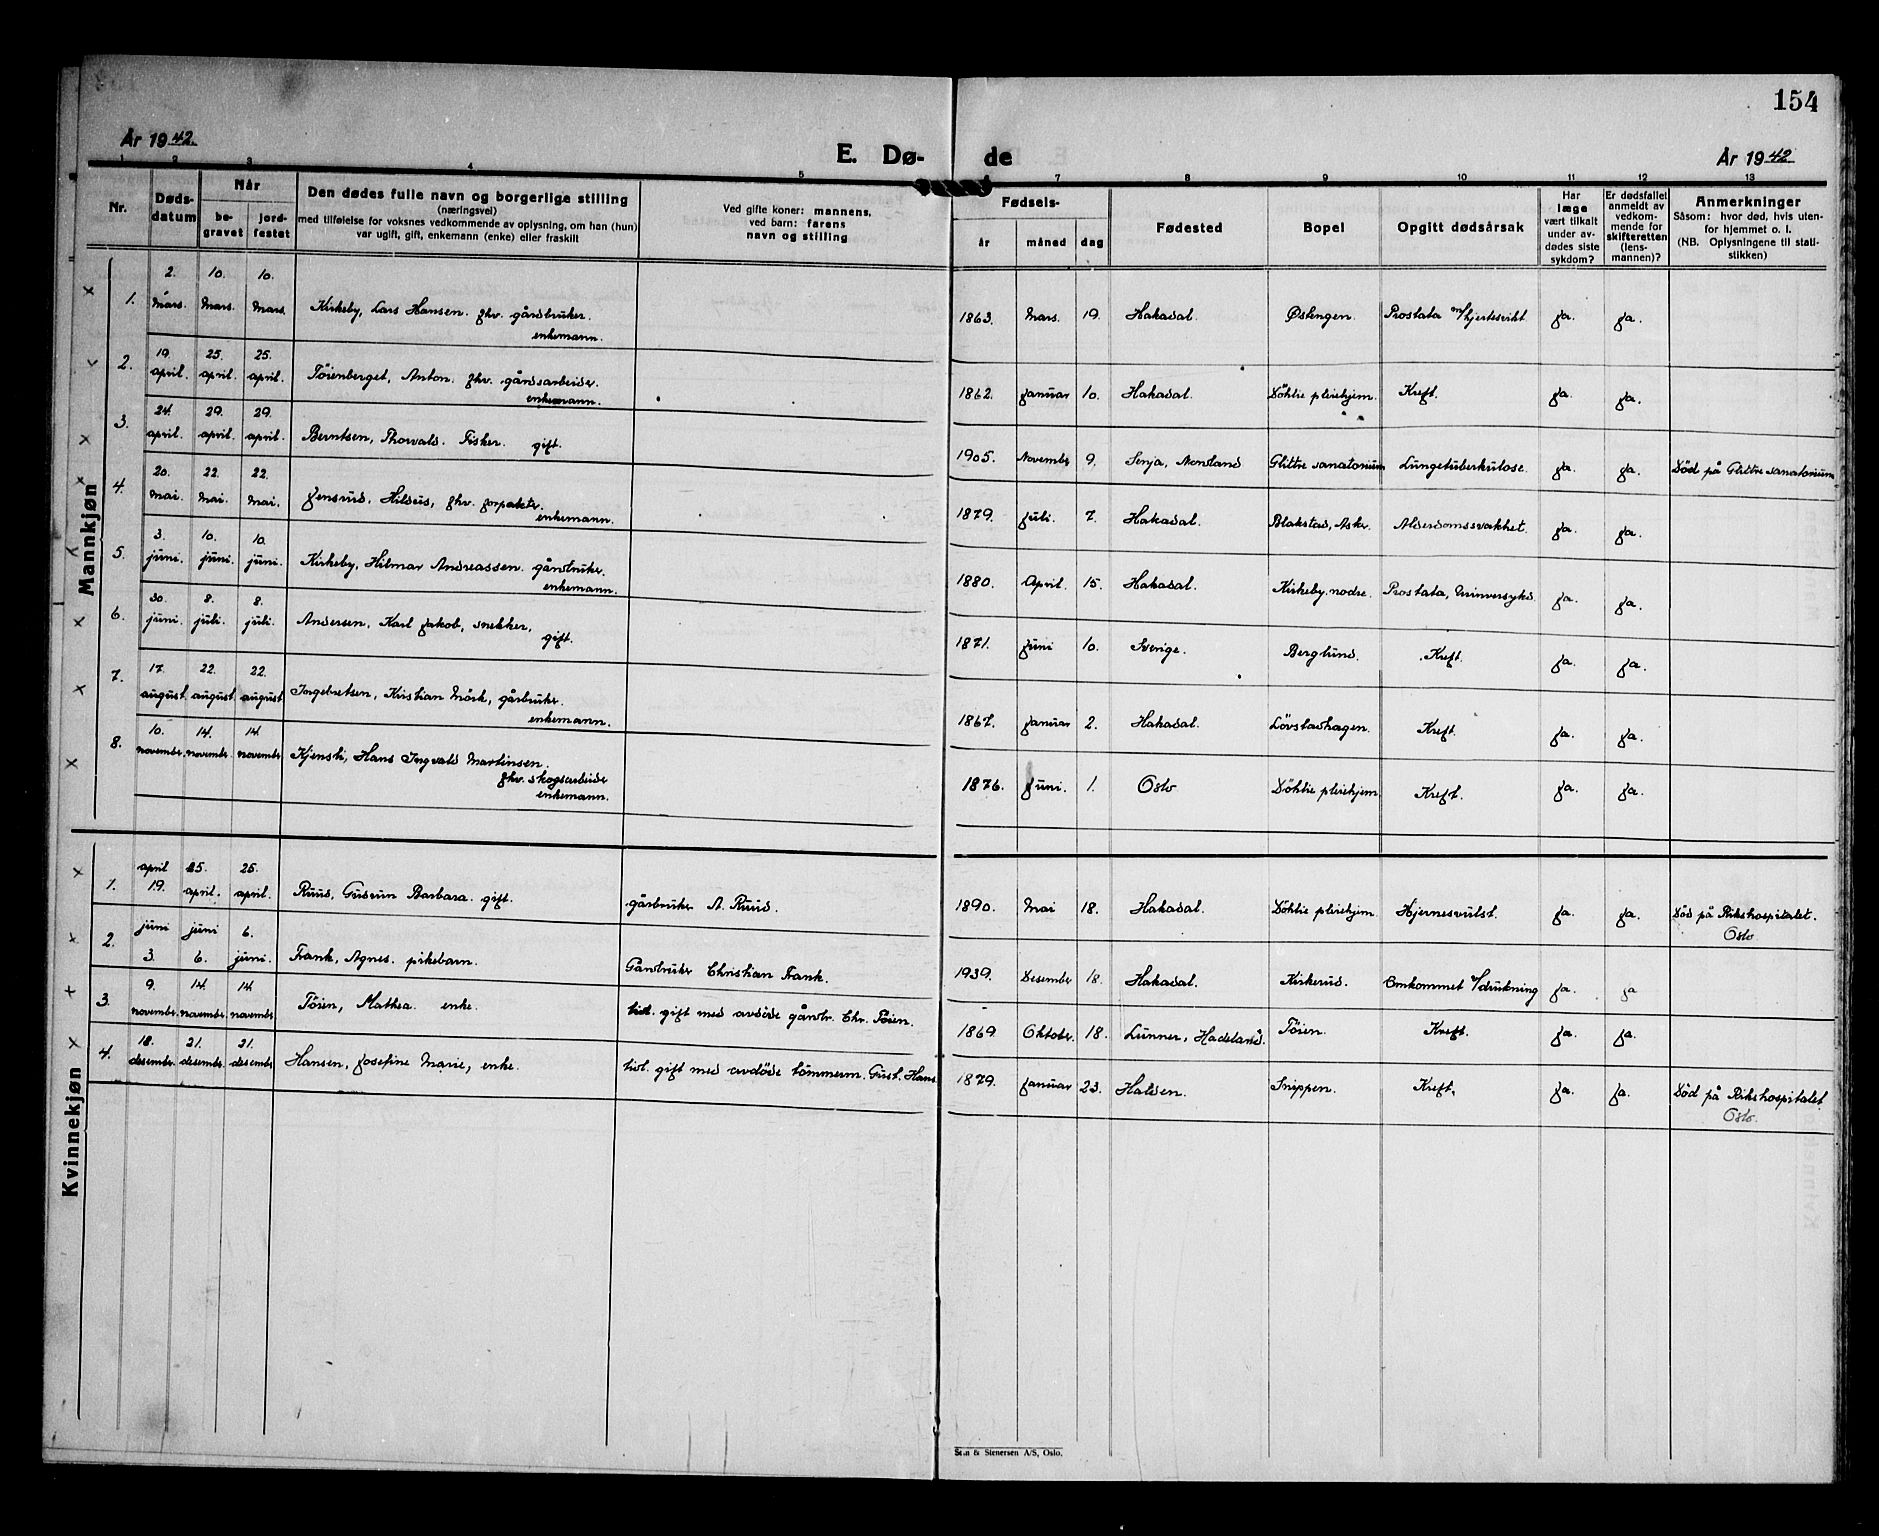 154
År 1942.
E. Dø-
de
År 1942
1 2 3 4 5 7 8 9 10 11 12 13
Nr.
Døds-
datum
Når
be-
gravet
jord-
festet
Den dødes fulle navn og borgerlige stilling
(næringsvei)
med tilføielse for voksnes vedkommende av oplysning, om han (hun)
var ugift, gift, enkemann (enke) eller fraskilt
Ved gifte koner: mannens,
ved barn: farens
navn og stilling
Fødsels-
år måned dag
Fødested
Bopel
Opgitt dødsårsak
Har
læge
vært tilkalt
under av-
dødes siste
sykdom?
Er dødsfallet
anmeldt av
vedkom-
mende for
skifteretten
(lens-
mannen)?
Anmerkninger
Såsom: hvor død, hvis uten-
for hjemmet o. l.
(NB. Oplysningene til stati-
stikken)
Mannkjøn
1. 2. mars. 10. mars. 10. mars. Kirkeby, Lars Hansen. fhv. gårdbruker.
enkemann. 1863. Mars. 19. Hakadal. Østengen. Prostata m/hjertesvikt Ja. Ja.
2. 19. april. 25. april. 25. april. Töienberget, Anton. fhv. gårdsarbeider
enkemann. 1862. Januar 10. Hakadal. Döhlie pleiehjem. Kreft. Ja. Ja.
3. 24. april. 29. april. 29. april. Berntsen, Thorvald. Fisker. gift. 1905. November 9. Senja, Nordland Glittre sanatorium Lungetuberkulose. Ja. Ja. Död på Glittre sanatorium
4. 20. mai. 22. mai. 22. mai. Jensrud, Hildeus, fhv. forpakter.
enkemann. 1879. Juli. 7. Hakadal. Blakstad, Asker. Alderdomssvakhet. Ja. Ja.
5. 3. juni. 10. juni. 10. juni. Kirkeby, Hilmar Andreassen. gårdbruker.
enkemann. 1880. April. 15. Hakadal. Kirkeby, nodre. Prostata, Urinversykd. Ja. Ja.
6. 30. juni. 8. juli. 8. juli. Andersen, Karl Jakob, snekker,
gift. 1871. Juni 10. Sverige. Berglund. Kreft. Ja. Ja.
7. 17. august. 22. august. 22. august Ingebretsen, Kristian Mörk, gårbruker.
enkemann. 1867. Januar 2. Hakadal. Lövstadhagen. Kreft. Ja. Ja.
8. 10. november. 14. november. 14. november Kjensli, Hans Ingvald Martinsen.
fhv. skogsarbeider
enkemann. 1876. Juni. 1. Oslo Döhlie pleiehjem. Kreft. Ja. Ja.
Kvinnekjøn
1. april 19. 25. april. 25. april. Ruud, Gudrun Barbara. gift. gårbruker A. Ruud. 1890. Mai 18. Hakadal. Döhlie pleiehjem. Hjernesvulst. Ja. Ja. Död på Rikshospitalet.
Oslo.
2. juni 3. juni 6. 6. juni. Frank, Agnes. pikebarn. Gårdbruker Christian Frank. 1939. Desember 18. Hakadal. Kirkerud. Omkommet v/drukning Ja. Ja
3. 9. november. 14. november. 14. november Töien, Mathea enke. tidl. gift med avdöde gårdbr. Chr. Töien. 1869. Oktober. 18. Lunner, Hadeland. Töien. Kreft. Ja. Ja.
4. 18. desember. 21. desember. 21. desember Hansen, Josefine Marie, enke. tidl. gift med avdöde tömmerm. Gust. Hans. 1879. Januar 23. Halden. Snippen. Kreft. Ja. Ja. Död på Rikshospitalet
Oslo.
& Stenersen A/S, Oslo.